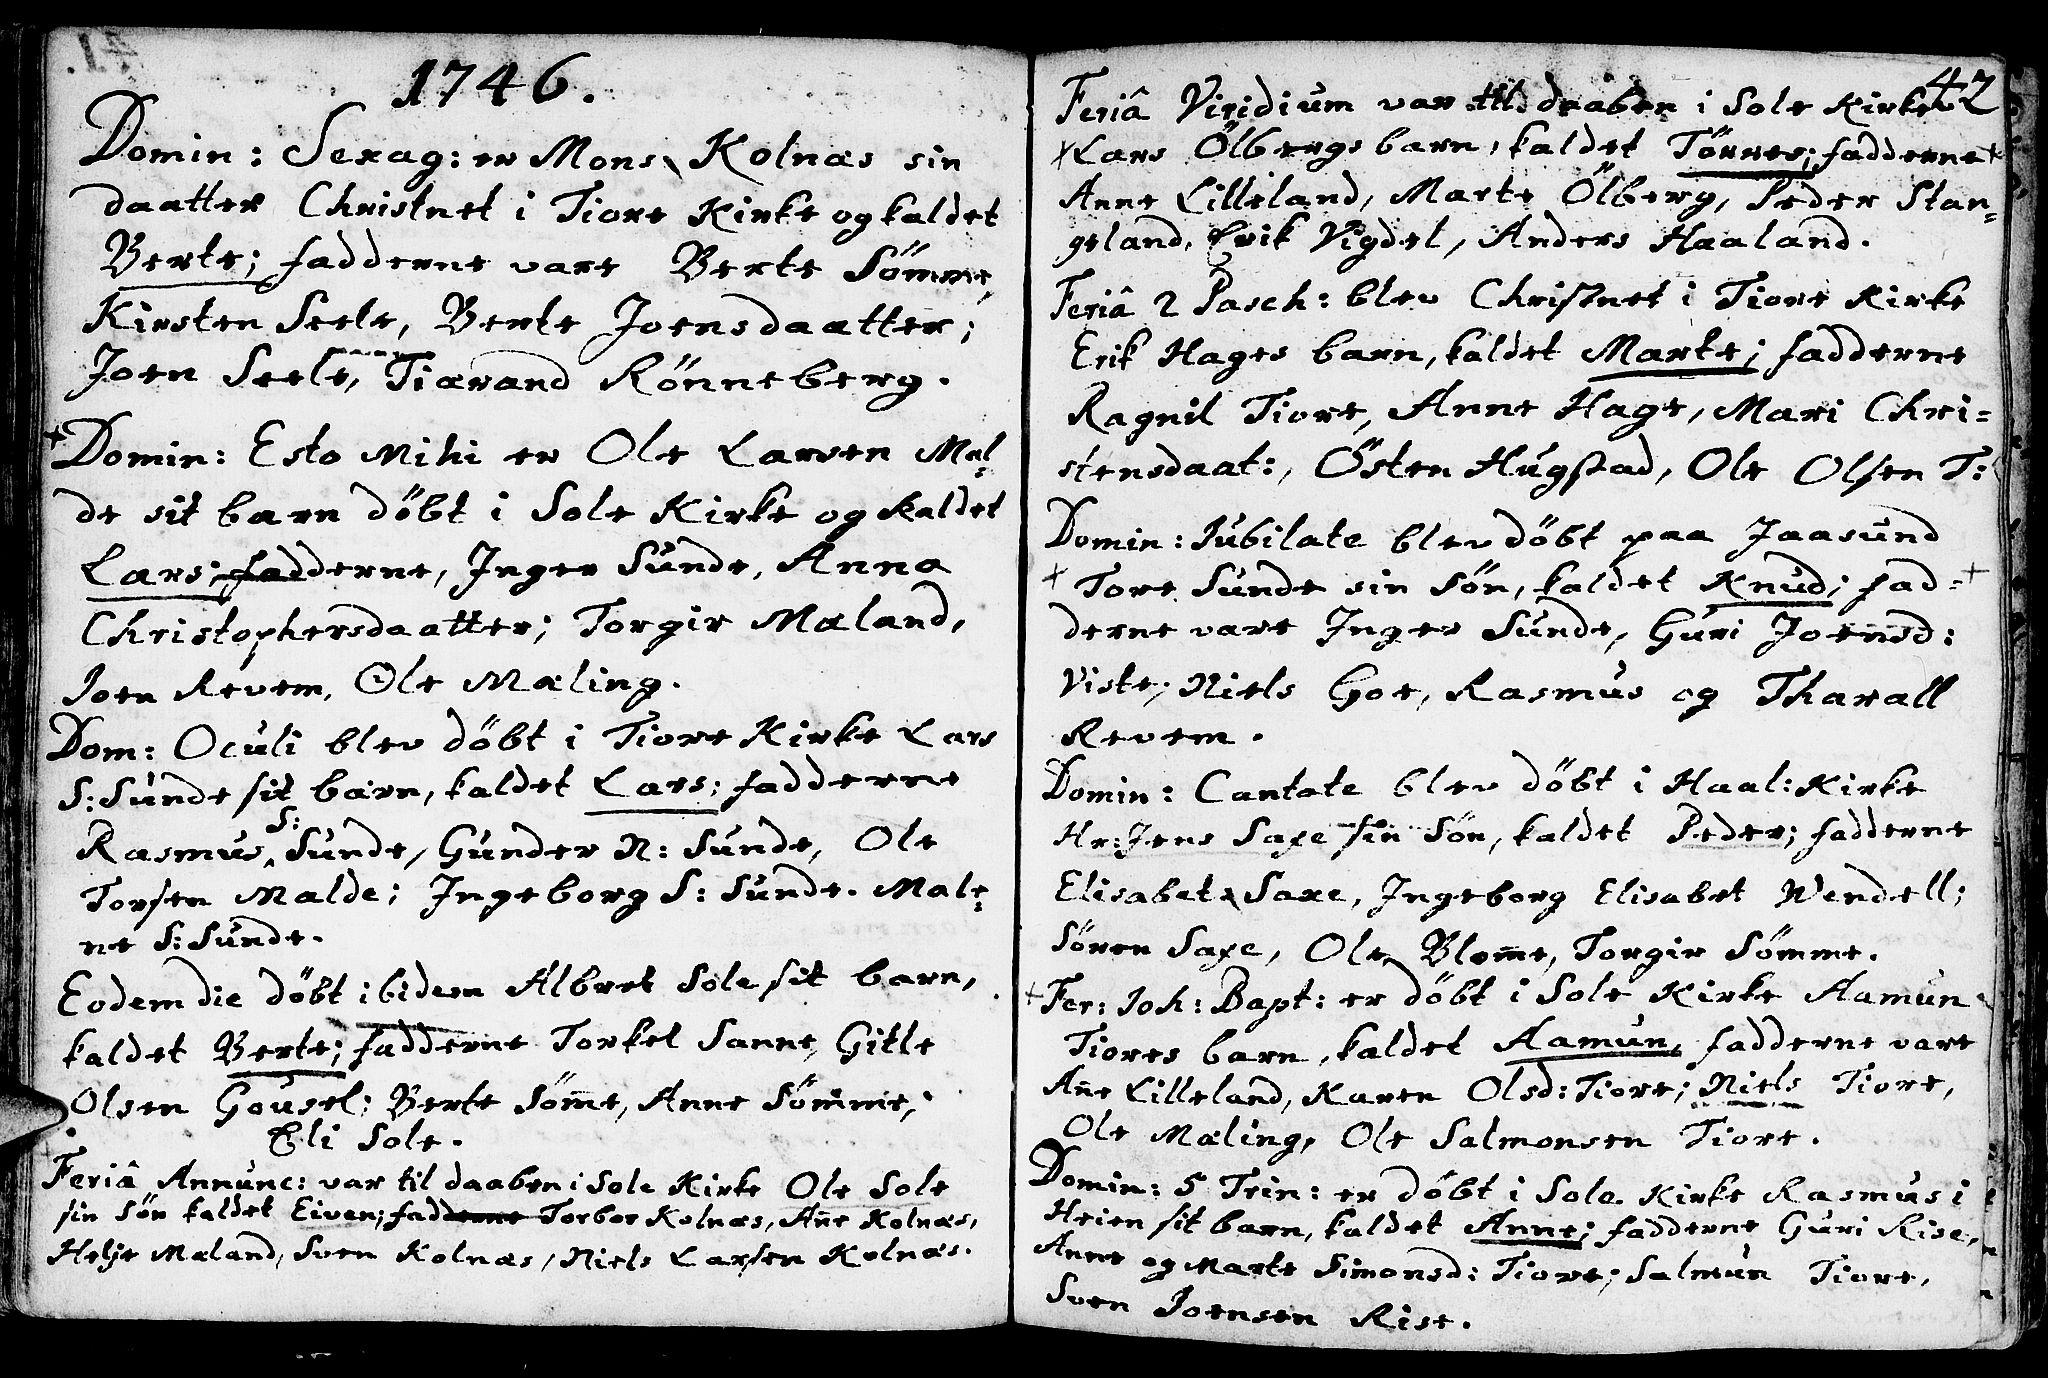 1746.
Domin: Sexag: er Mons Kolnæs sin
daatter Christnet i Tiore Kirke og kaldet
Berte; fadderne vare Berte Sömme,
Kirsten Seele, Berte Joensdaatter;
Joen Seele, Tiærand Rönneberg.
+ Domin: Esto Mihi er Ole Larsen Mal=
de sit barn döbt i Sole Kirke og kaldet
Lars; fadderne, Inger Sunde, Anna
Christophersdaatter; Torgir Mæland,
Joen Revem, Ole Mæling.
Dom: Oculi blev döbt i Tiore Kirke Lars
S: Sunde sit barn, kaldet Lars; fadderne
Rasmus S: Sunde, Gunder N: Sunde, Ole
Torsen Malde; Ingeborg S: Sunde. Male=
ne S: Sunde.
Eodem die döbt ibidem Albret Sole sit barn,
kaldet Berte; fadderne Torkel Sanne, Gitle
Olsen Gousel; Berte Söm̅e, Anne Sömme,
Eli Sole.
Feriâ Annunc: var til daaben i Sole Kirke Ole Sole
sin Sön kaldet Eiven; fadderne Torbor Kolnæs, An̅e Kolnæs,
Helje Mæland, Sven Kolnæs, Niels Larsen Kolnæs.
42
Feriâ Viridium var til daaben i Sole Kirke
+ Lars Ölbergs barn, kaldet Tönnes; fadderne +
Anne Lilleland, Marte Ölberg, Peder Stan=
geland, Erik Vigdel, Anders Haaland.
Feriâ 2 Pasch: blev Christnet i Tiore Kirke
Erik Hages barn, kaldet Marte; fadderne
Ragnil Tiore, Anne Hage, Mari Chri=
stensdaat:, Östen Hugstad, Ole Olsen T:
Domin: Jubilate blev döbt paa Jaasund
+ Tore Sunde sin Sön, kaldet Knud; fad= +
derne vare Inger Sunde, Guri Joensd:
Viste; Niels Goe, Rasmus og Tharall
Revem.
Domin: Cantate blev döbt i Haal: Kirke
Hr: Jens Saxe sin Sön, kaldet Peder; fadderne
Elisabet Saxe, Ingeborg Elisabet Wendell;
Sören Saxe, Ole Blom̅e, Torgir Sömme.
+ Fer: Joh: Bapt: er döbt i Sole Kirke Aamun
Tiores barn, kaldet Aamun, fadderne vare
An̅e Lilleland, Karen Olsd: Tiore; Niels Tiore,
Ole Mæling, Ole Salmonsen Tiore.
Domin: 5 Trin: er döbt i Sole Kirke Rasmus i
Heien sit barn, kaldet Anne; fadderne Guri Rise,
Anne og Marte Simonsd: Tiore; Salmun Tiore,
Sven Joensen Rise.